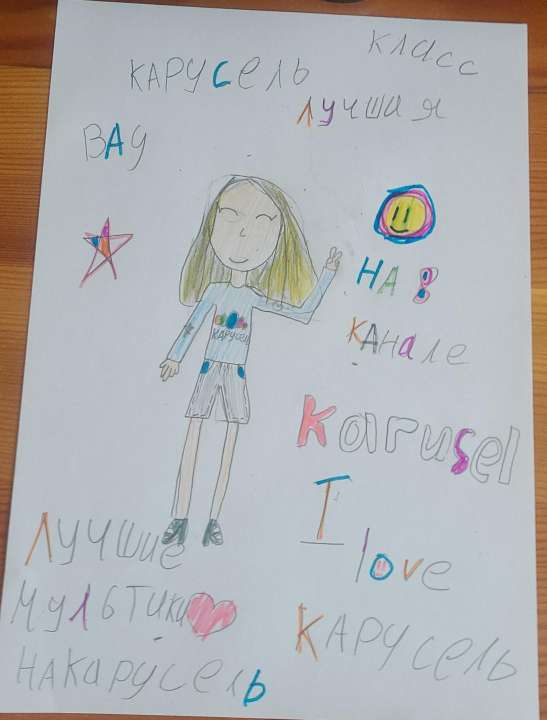 КЛАСС
КАРУСЕЛЬ
ЛУЧШАЯ
ВАУ
НА
КАРУСЕЛЬ
КАНАЛЕ
Karusel
I
love
ЛУЧШИЕ
МУЛЬТИКИ
КАРУСЕЛЬ
НА КАРУСЕЛЬ